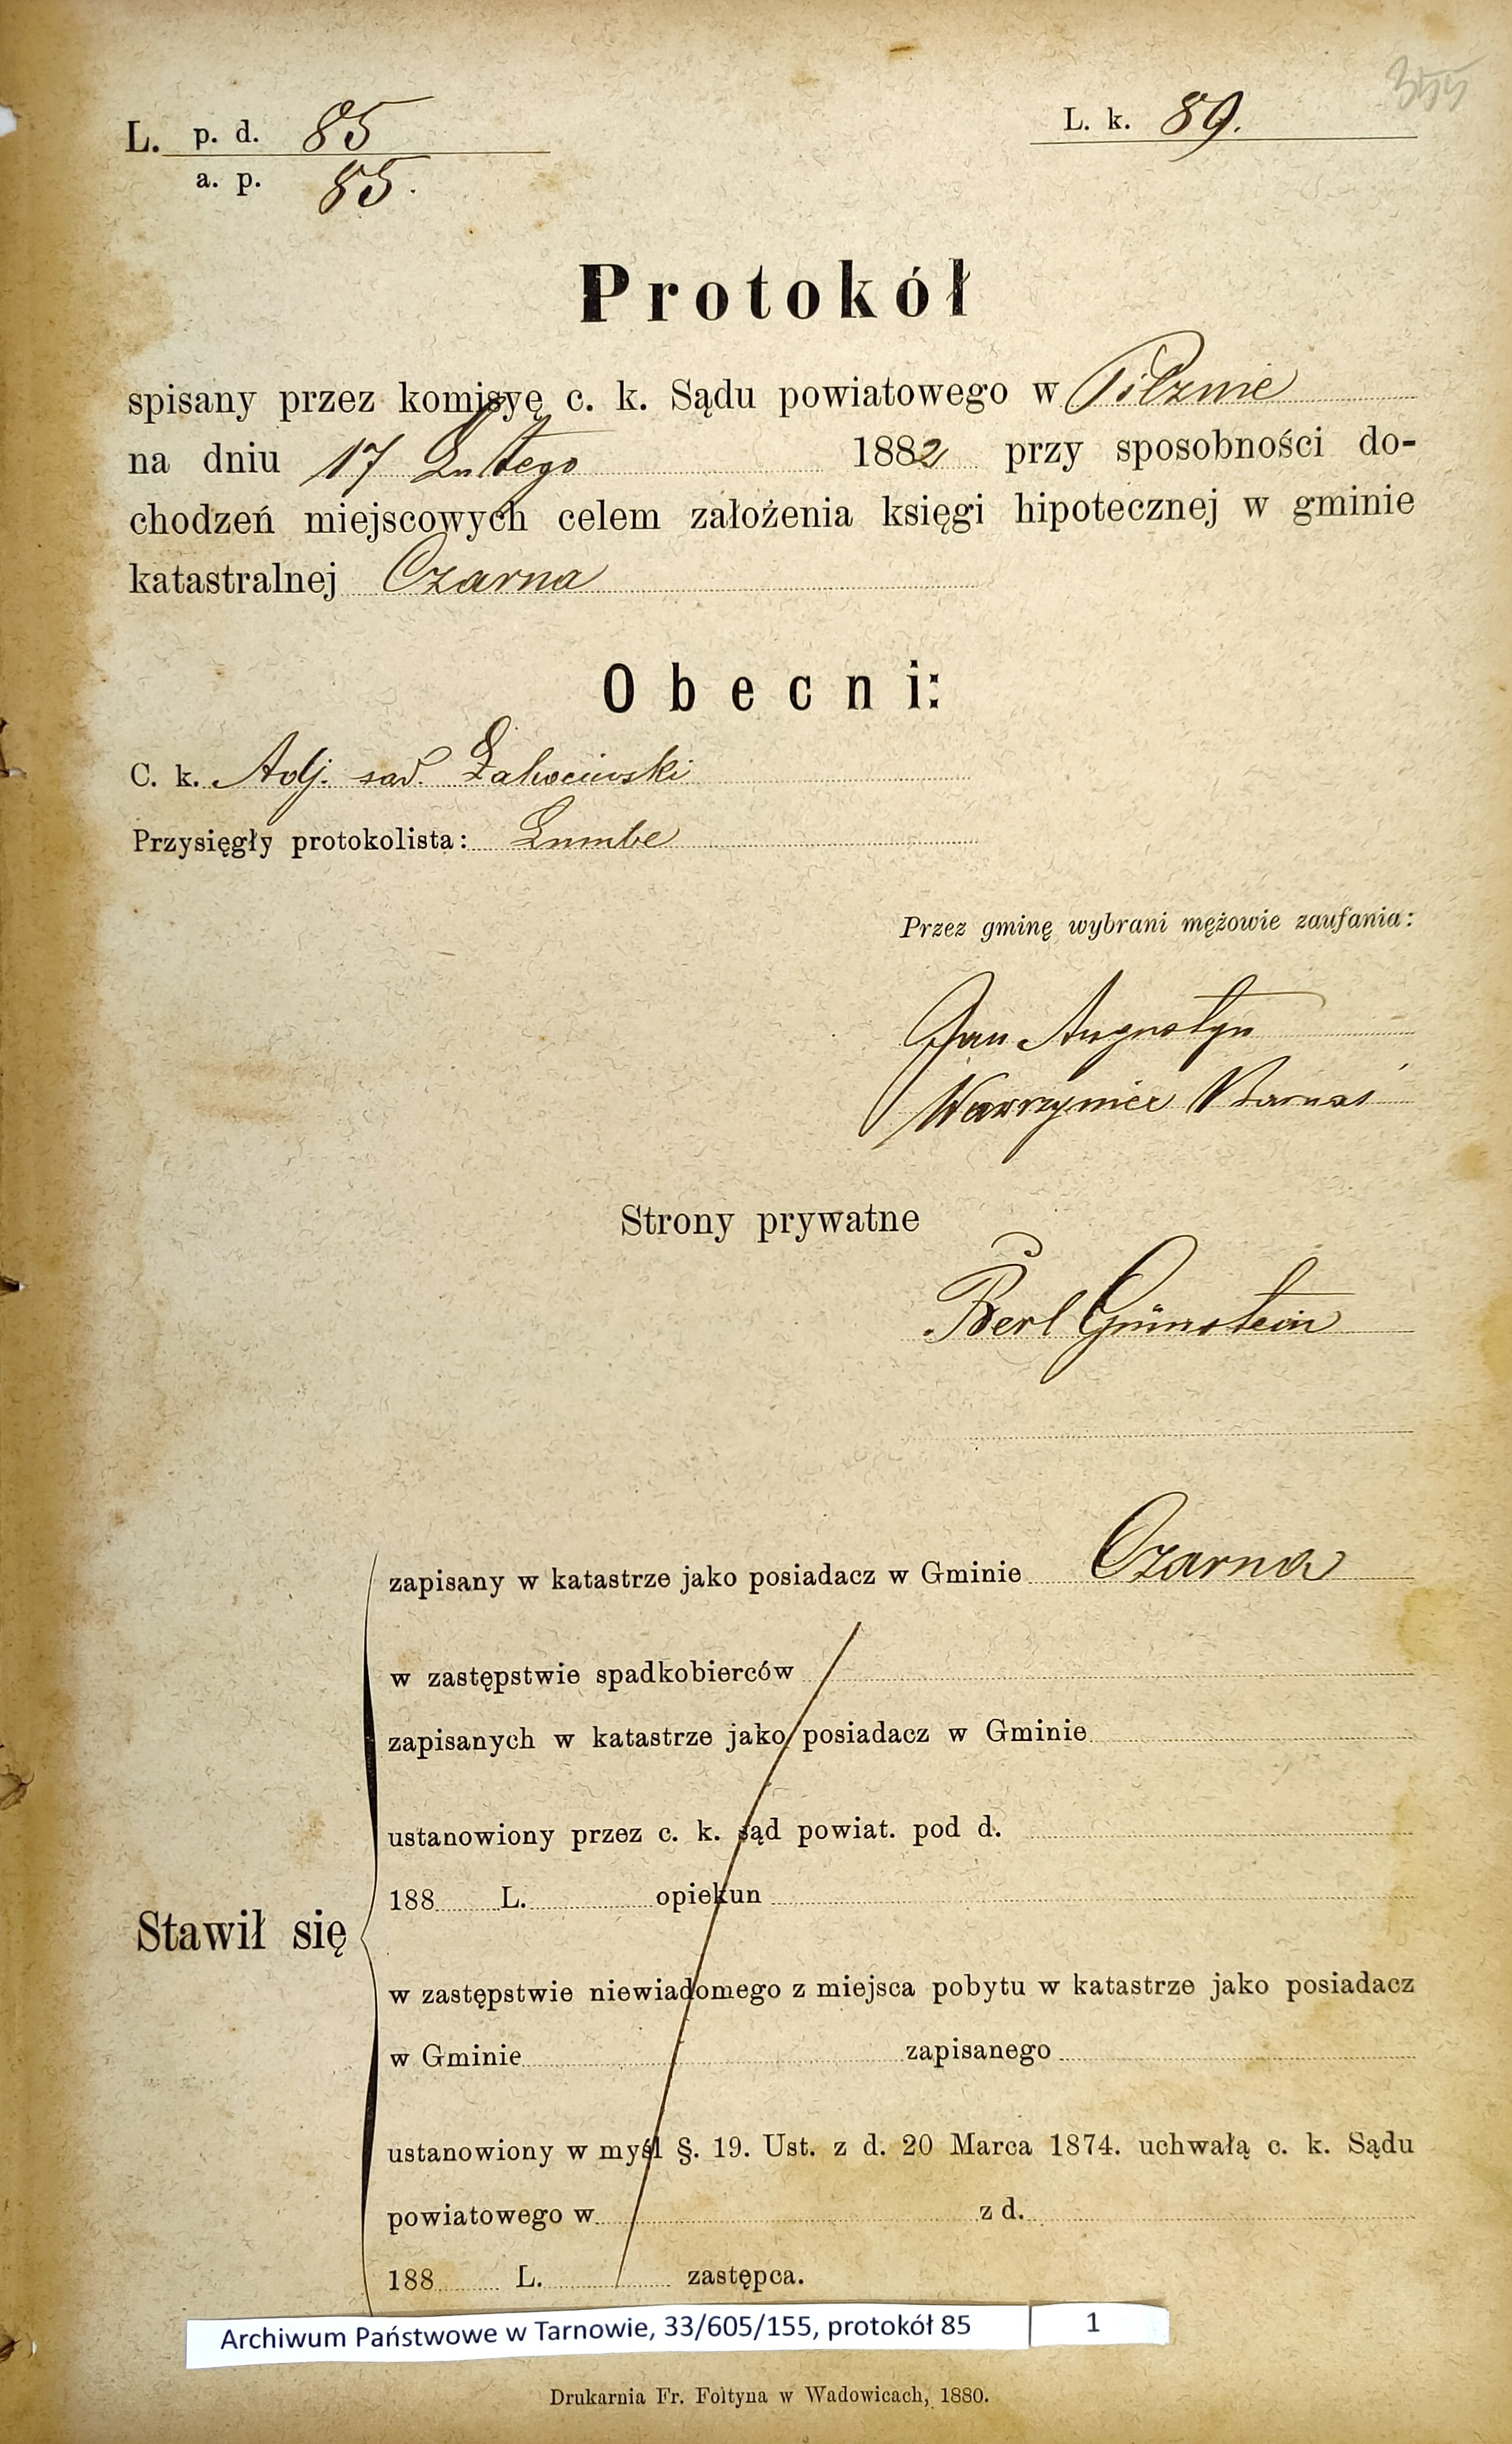 355
L. p. d. 85
a. p. 85.
L. k. 89.
Protokół
spisany przez komisyę c. k. Sądu powiatowego w Pilznie
na dniu 17 Lutego 1882 przy sposobności do-
chodzeń miejscowych celem założenia księgi hipotecznej w gminie
katastralnej Czarna
Obecni:
C. k. Adj. sąd.
Przysięgły protokolista:
Przez gminę wybrani mężowie zaufania:
Jan Augustyn
Wawrzyniec
Strony prywatne
Berl Grünstein
Stawił się
zapisany w katastrze jako posiadacz w Gminie Czarna
w zastępstwie spadkobierców
zapisanych w katastrze jako posiadacz w Gminie
ustanowiony przez c. k. sąd powiat. pod d.
188 L. opiekun
w zastępstwie niewiadomego z miejsca pobytu w katastrze jako posiadacz
w Gminie zapisanego
ustanowiony w myśl §. 19. Ust. z d. 20 Marca 1874. uchwałą c. k. Sądu
powiatowego w z d.
188 L. zastępca.
Archiwum Państwowe w Tarnowie, 33/605/155, protokół 85 1
Drukarnia Fr. Foltyna w Wadowicach, 1880.